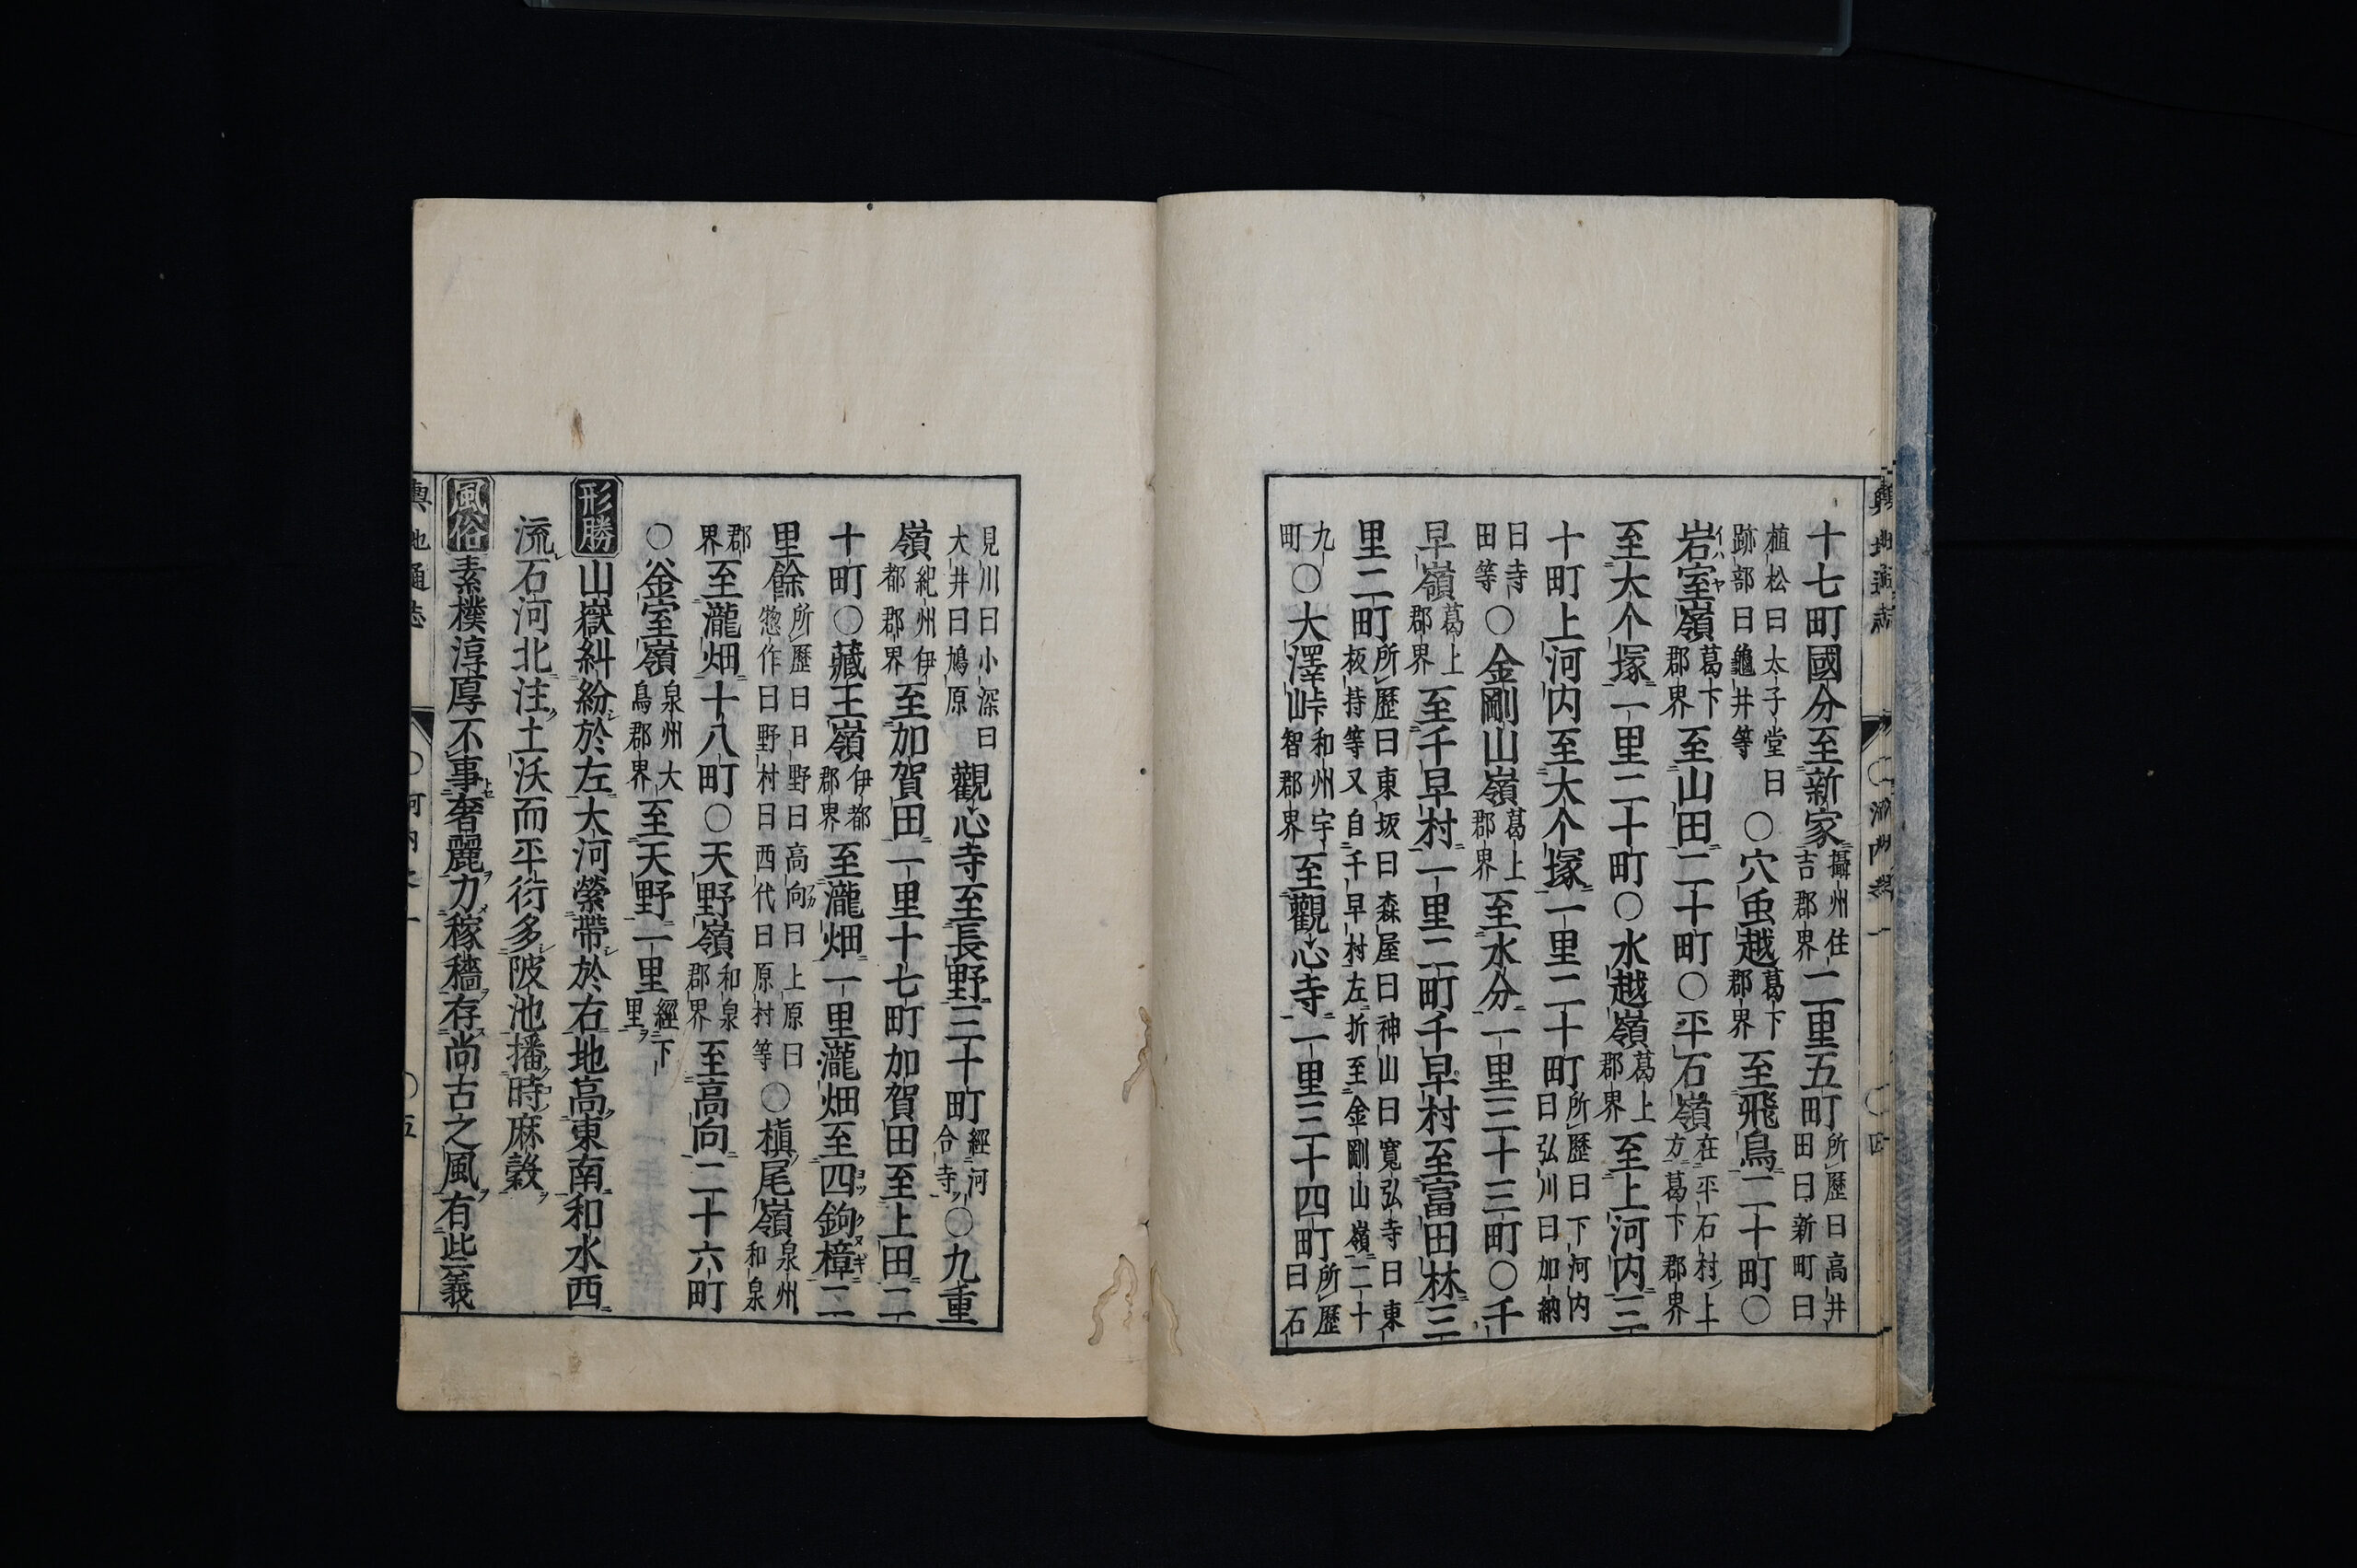 十七町國分至新家攝州住吉郡界二里五町所歷曰高井田曰新町曰
植松曰太子堂曰跡部曰龜井等○穴虫越葛下郡界至飛鳥二十町○
岩室嶺葛下郡界至山田二十町○平石嶺在平石村上方葛下郡界
至大个塚一里二十町○水越嶺葛上郡界至上河内三
十町上河内至大个塚一里二十町所歷曰下河内曰弘川曰加納
曰寺田等○金剛山嶺葛上郡界至水分一里三十三町○千
早嶺葛上郡界至千早村一里二町千早村至富田林三
里二町所歷曰東坂曰森屋曰神山曰寬弘寺曰東板持等又自千早村左折至金剛山嶺二十
九町○大澤峠和州宇智郡界至觀心寺一里三十四町所歷曰石
見川曰小深曰大井曰鳩原觀心寺至長野三十町經河合寺○九重
嶺紀州伊都郡界至加賀田一里十七町加賀田至上田二
十町○藏王嶺伊都郡界至瀧畑一里瀧畑至四鉤樟二
里餘所歷曰日野曰高向曰上原曰惣作曰野村曰西代曰原村等○槇尾嶺泉州和泉
郡界至瀧畑十八町○天野嶺和泉郡界至高向二十六町
○釜室嶺泉州大鳥郡界至天野一里經下里
形勝山嶽糾紛於左大河縈帶於右地高東南和水西
流石河北注土沃而平衍多陂池播時麻穀
風俗素樸淳厚不事奢麗力稼穡存尚古之風有些義
輿地通志
○河内之一
○五